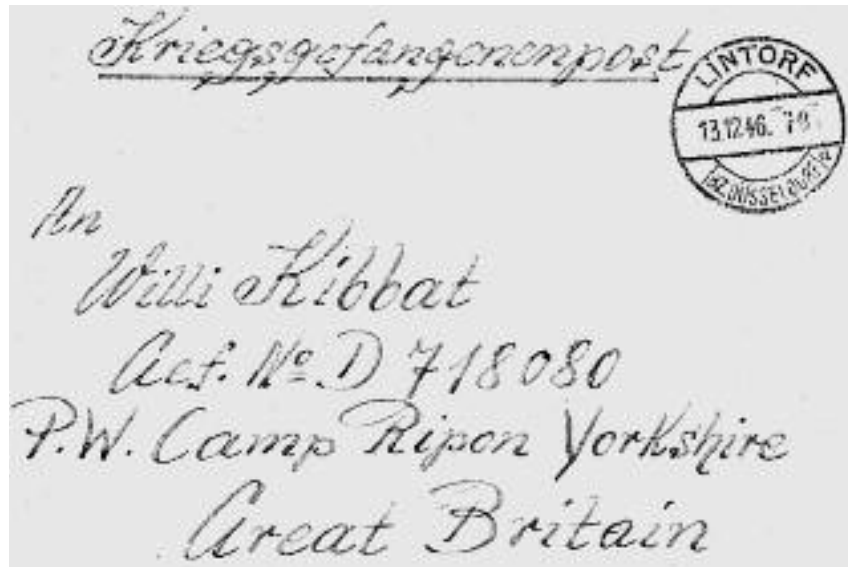 Kriegsgefangenenpost
LINTORF
13.12.46.
(BZ. DÜSSELDORF)
An
Willi Kibbat
Gef. Nº D 718080
P.W. Camp Ripon Yorkshire
Great Britain